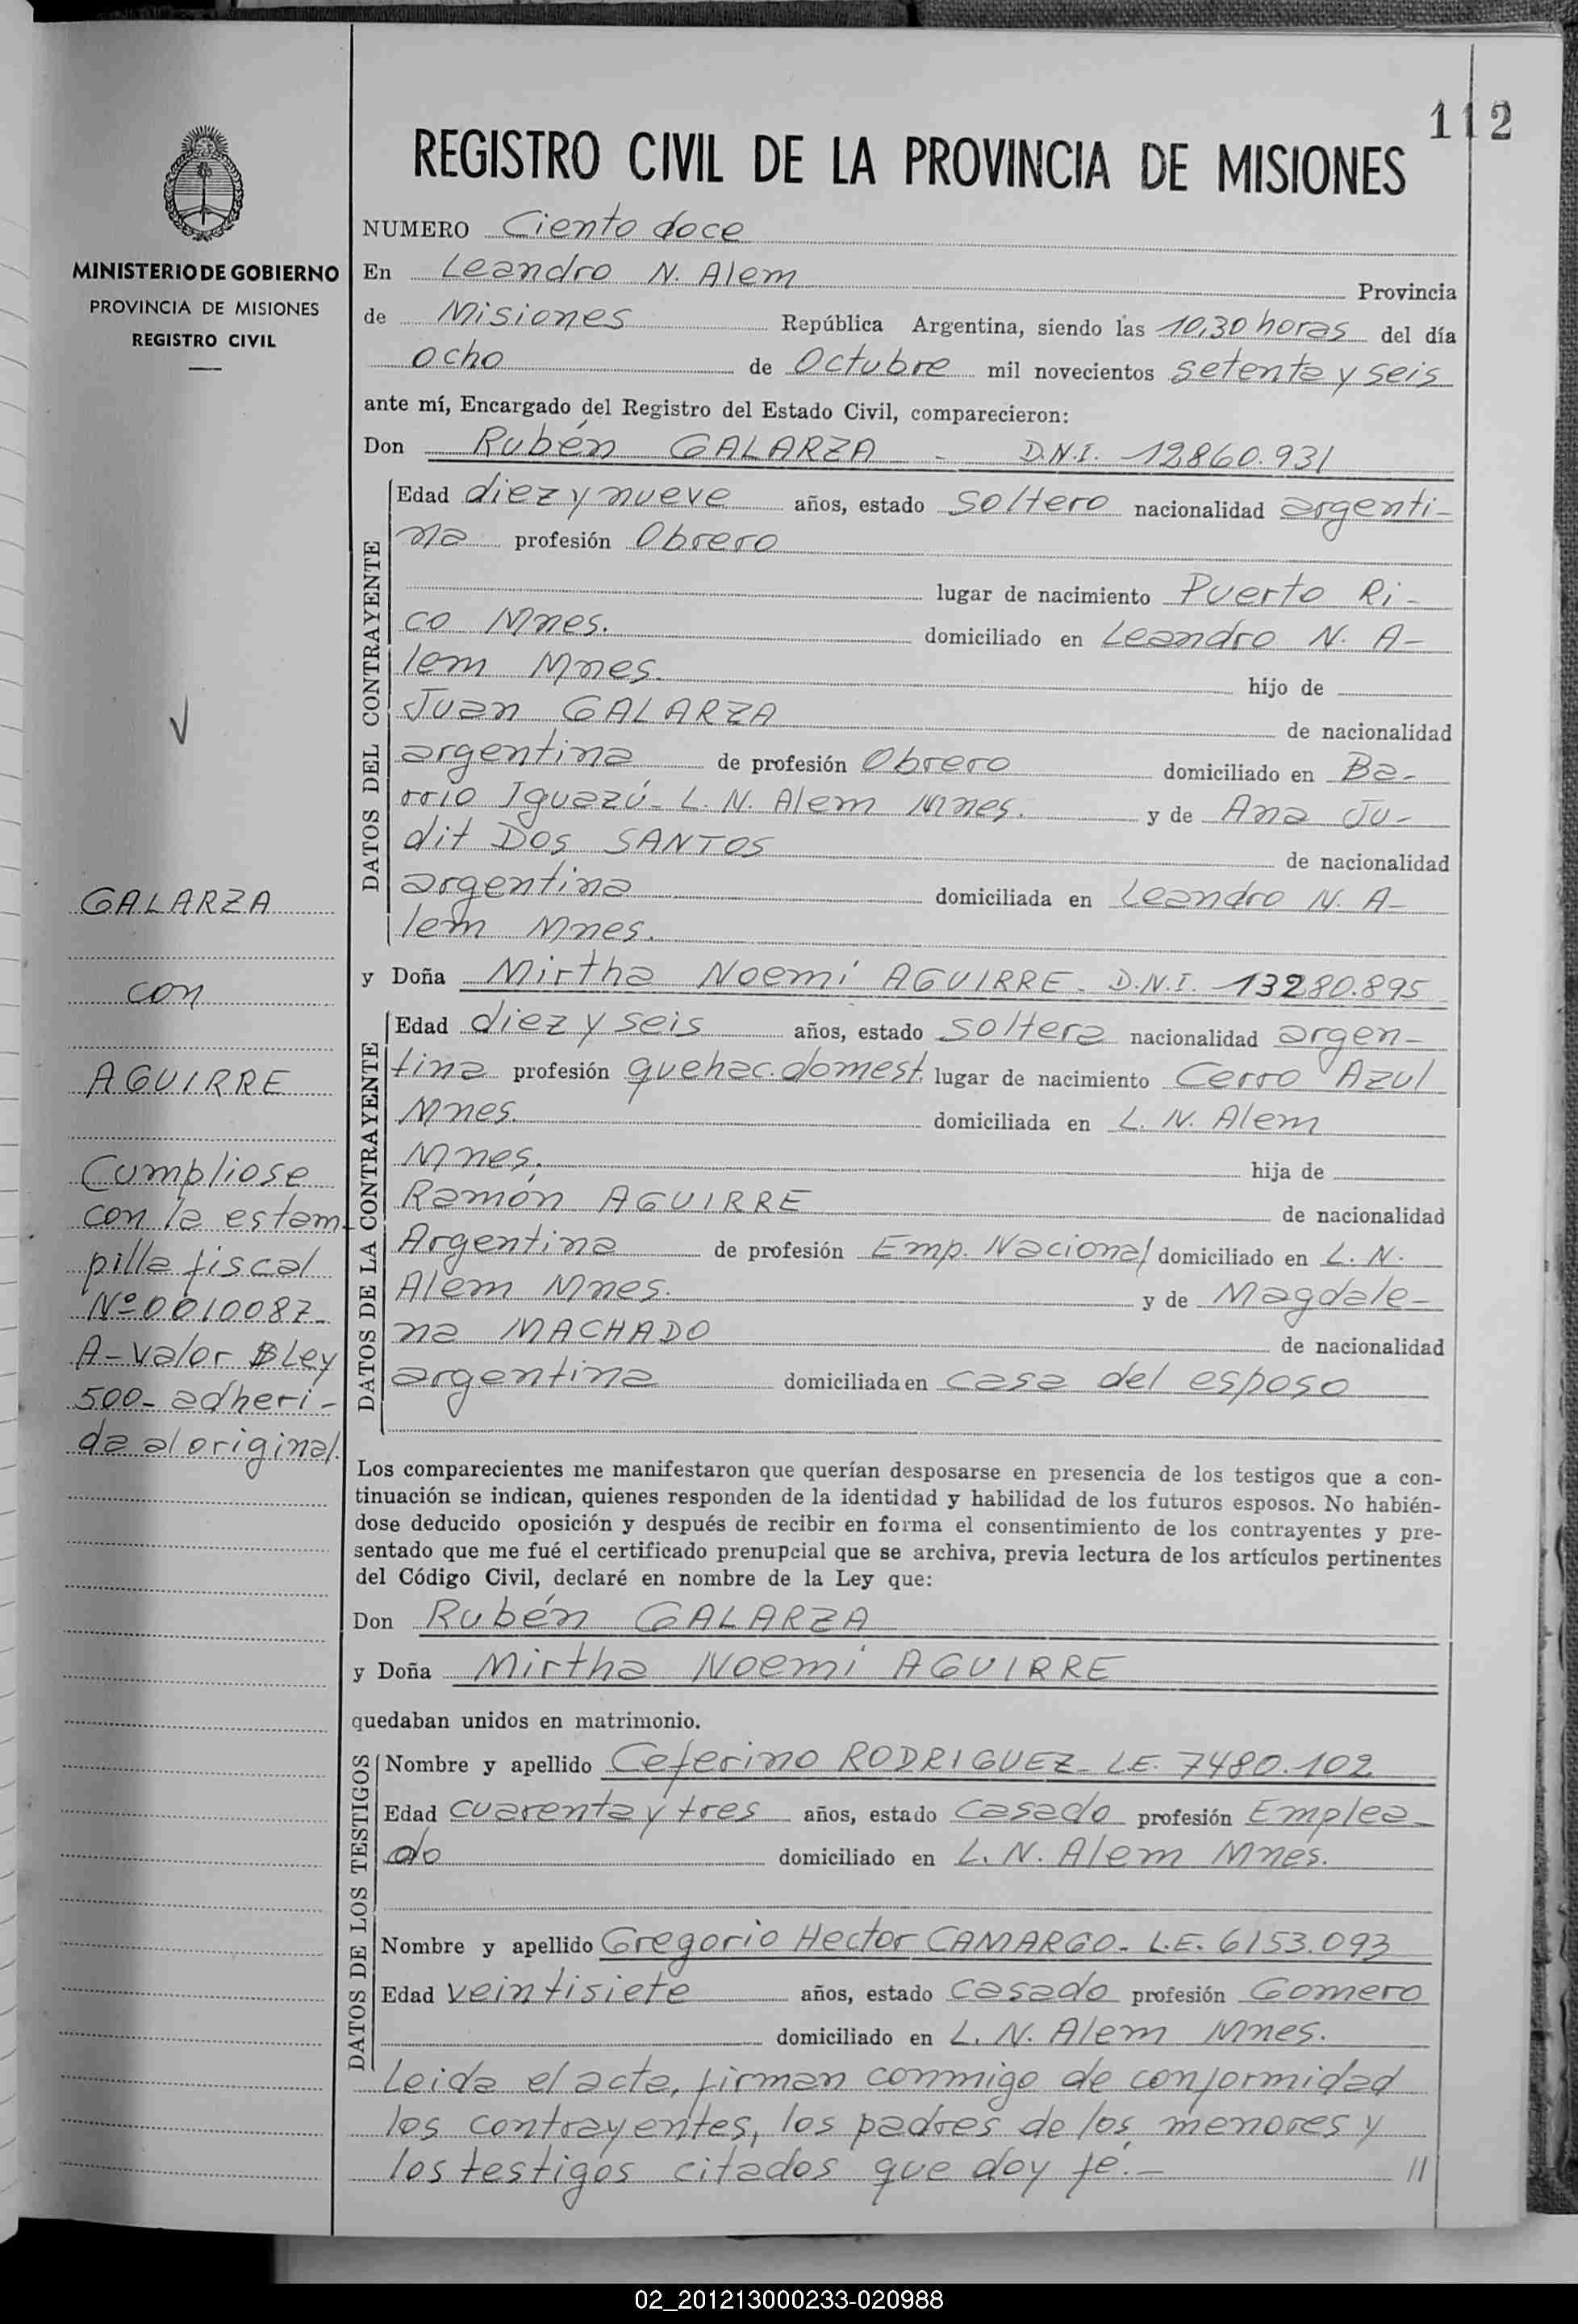 112
REGISTRO CIVIL DE LA PROVINCIA DE MISIONES
MINISTERIO DE GOBIERNO
PROVINCIA DE MISIONES
REGISTRO CIVIL
NUMERO Ciento doce
En Leandro N. Alem Provincia
de Misiones República Argentina, siendo las 10,30 horas del día
ocho de Octubre mil novecientos setenta y seis
ante mí, Encargado del Registro del Estado Civil, comparecieron:
Don Rubén GALARZA - D.N.I. 12860.931
DATOS DEL CONTRAYENTE
Edad diez y nueve años, estado soltero nacionalidad argenti-
na profesión Obrero
lugar de nacimiento Puerto Ri-
co Mnes. domiciliado en Leandro N. A-
lem Mnes. hijo de
Juan GALARZA de nacionalidad
argentina de profesión Obrero domiciliado en Ba-
rrio Iguazú- L. N. Alem Mnes. y de Ana Ju-
dit DOS SANTOS de nacionalidad
argentina domiciliada en Leandro N. A-
lem Mnes.
y Doña Mirtha Noemí AGUIRRE - D.N.I. 13280.895
DATOS DE LA CONTRAYENTE
Edad diez y seis años, estado soltera nacionalidad argen-
tina profesión quehac. domest. lugar de nacimiento Cerro Azul
Mnes. domiciliada en L. N. Alem
Mnes. hija de
Ramón AGUIRRE de nacionalidad
Argentina de profesión Emp. Nacional domiciliado en L. N.
Alem Mnes. y de Magdale-
na MACHADO de nacionalidad
argentina domiciliada en casa del esposo
GALARZA
con
AGUIRRE
Cumpliose
con la estam-
pilla fiscal
Nº 0010087-
A-valor $Ley
500- adheri-
da al original.
Los comparecientes me manifestaron que querían desposarse en presencia de los testigos que a con-
tinuación se indican, quienes responden de la identidad y habilidad de los futuros esposos. No habién-
dose deducido oposición y después de recibir en forma el consentimiento de los contrayentes y pre-
sentado que me fué el certificado prenupcial que se archiva, previa lectura de los artículos pertinentes
del Código Civil, declaré en nombre de la Ley que:
Don Rubén GALARZA
y Doña Mirtha Noemí AGUIRRE
quedaban unidos en matrimonio.
DATOS DE LOS TESTIGOS
Nombre y apellido Ceferino RODRIGUEZ- LE. 7480.102
Edad cuarenta y tres años, estado casado profesión Emplea-
do domiciliado en L. N. Alem Mnes.
Nombre y apellido Gregorio Hector CAMARGO- L.E. 6153.093
Edad veintisiete años, estado casado profesión Gomero
domiciliado en L. N. Alem Mnes.
Leida el acta, firman conmigo de conformidad
los contrayentes, los padres de los menores y
los testigos citados que doy fé.- //
02_201213000233-020988